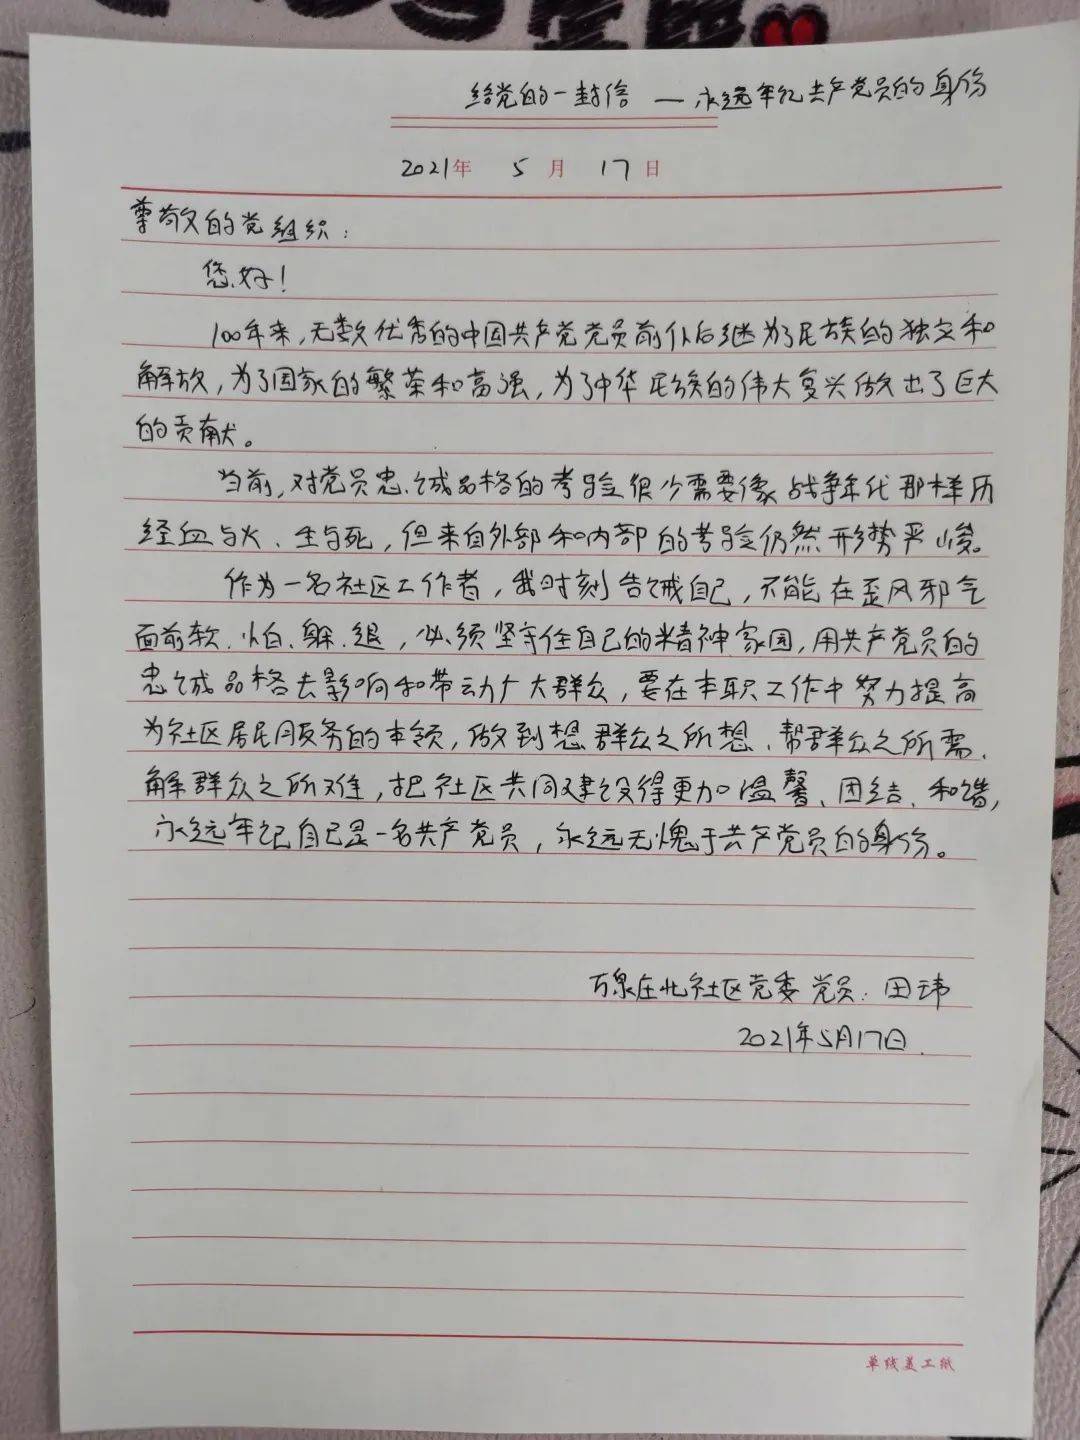 给党的一封信 — 永远牢记共产党员的身份
2021年 5月 17日
尊敬的党组织：
您好！
100年来,无数优秀的中国共产党党员前仆后继为了民族的独立和
解放,为了国家的繁荣和富强,为了中华民族的伟大复兴做出了巨大
的贡献。
当前,对党员忠诚品格的考验很少需要像战争年代那样历
经血与火、生与死,但来自外部和内部的考验仍然形势严峻。
作为一名社区工作者,我时刻告诫自己,不能在歪风邪气
面前软、怕、躲、退,必须坚守住自己的精神家园,用共产党员的
忠诚品格去影响和带动广大群众,要在本职工作中努力提高
为社区居民服务的本领,做到想群众之所想、帮群众之所需、
解群众之所难,把社区共同建设得更加温馨、团结、和谐,
永远牢记自己是一名共产党员,永远无愧于共产党员的身份。
万泉庄北社区党委 党员：田玮
2021年5月17日.
单线美工纸